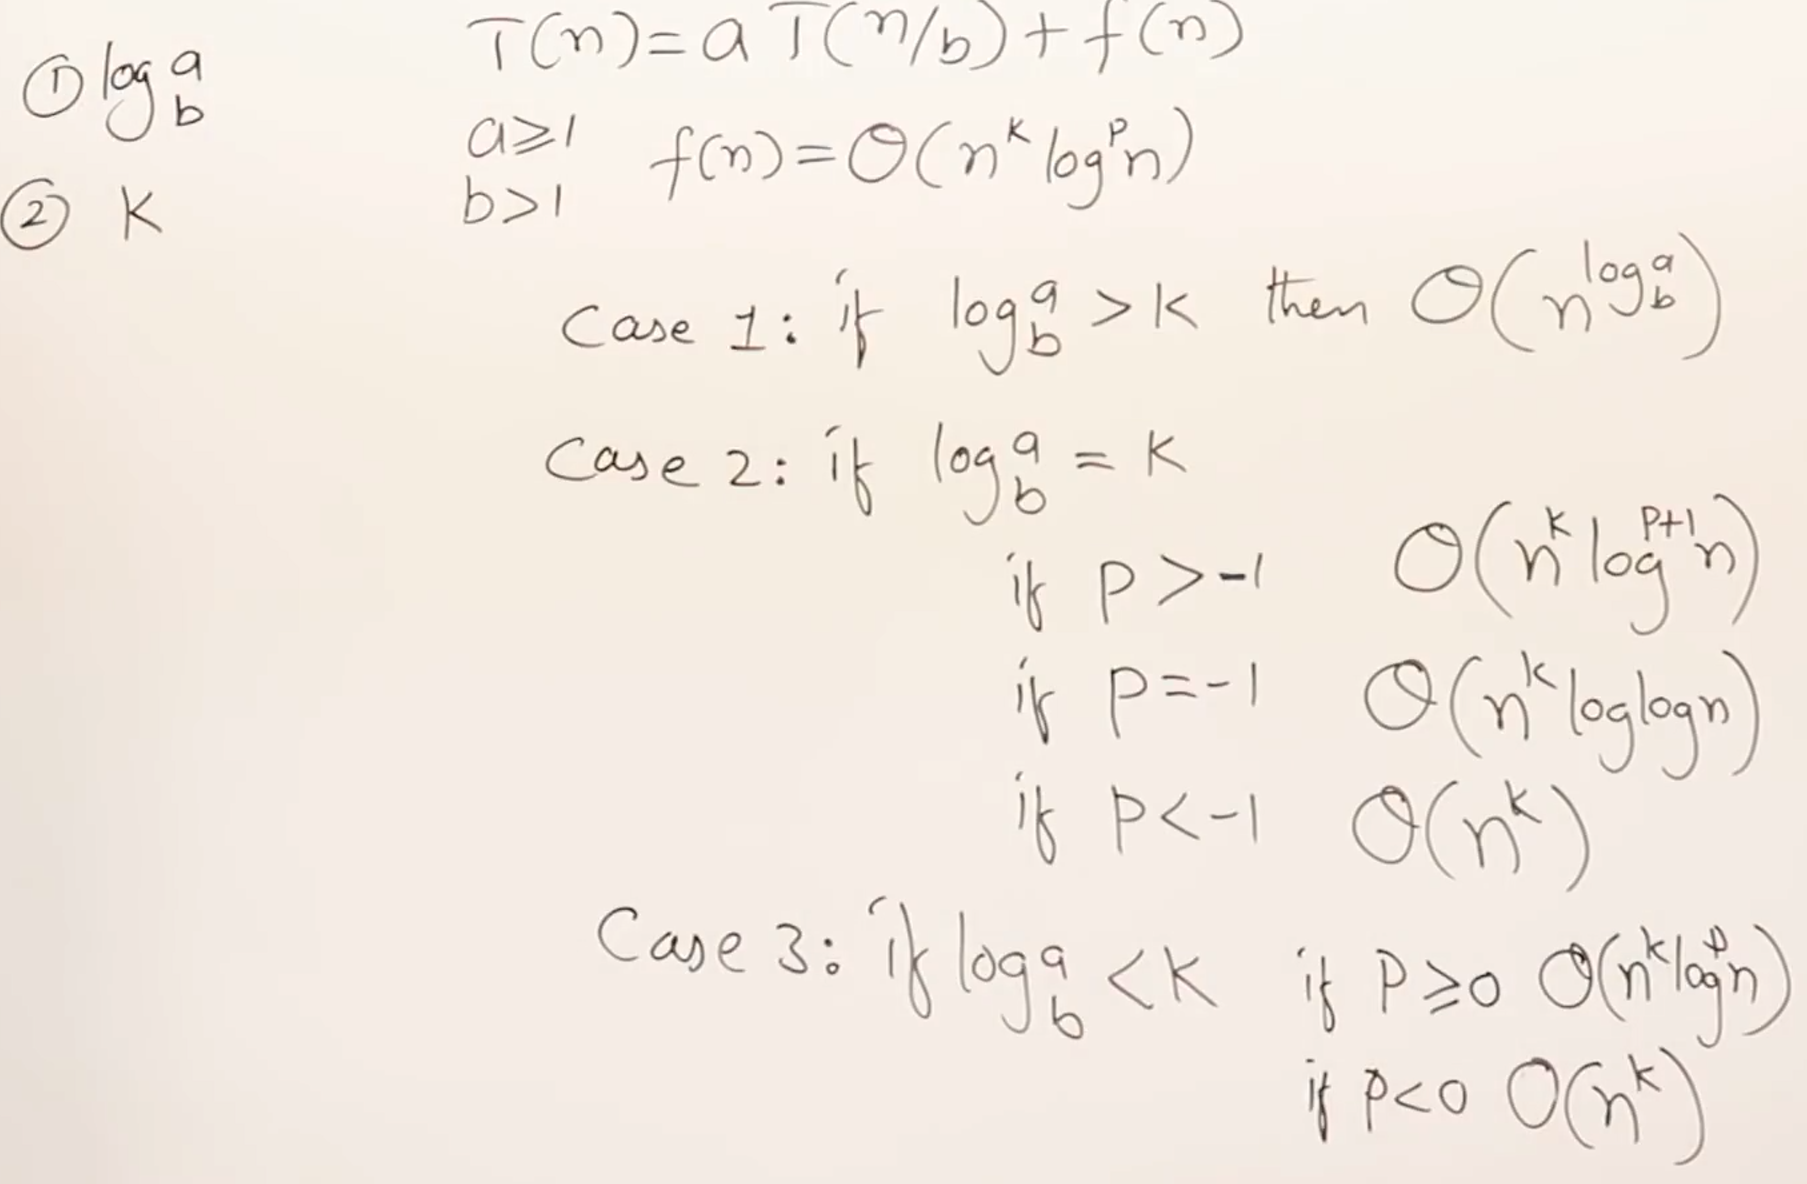 T(n)=aT(n/b)+f(n)
① log_b^a
a≥1 f(n)=Θ(n^k log^p n)
b>1
② K
Case 1: if log_b^a >k then Θ(n^(log_b^a))
Case 2: if log_b^a = K
if P>-1 Θ(n^k log^(P+1) n)
if P=-1 Θ(n^k loglogn)
if P<-1 Θ(n^k)
Case 3: if log_b^a <K if P≥0 Θ(n^k log^p n)
if P<0 O(n^k)